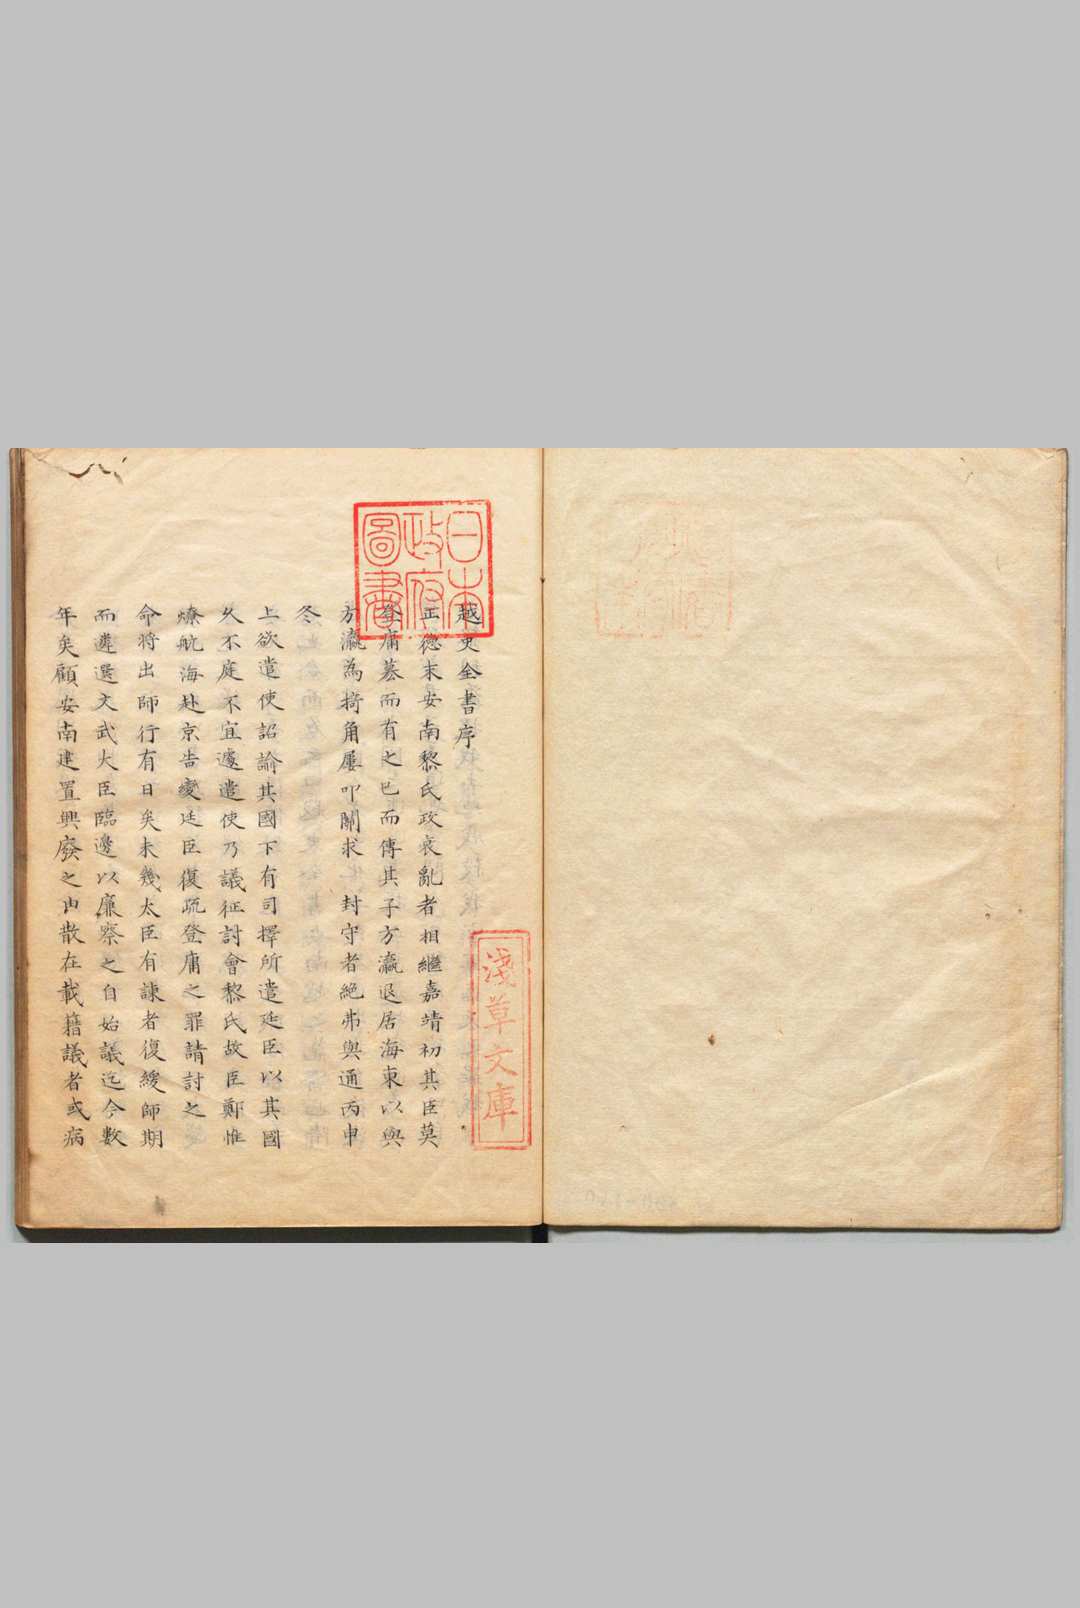 日本
政府
圖書
越吏全書序
正德末安南黎氏政衰亂者相繼嘉靖初其臣莫
登庸簒而有之已而傳其子方瀛退居海東以與
方瀛為掎角屢叩關求化封守者絶弗與通丙申
冬
上欲遣使詔諭其國下有司擇所遣廷臣以其國
久不庭不宜遽遣使乃議征討會黎氏故臣鄭惟
憭航海赴京告變廷臣復疏登庸之罪請討之
命将出師行有日矣未幾太臣有諌者復緩師期
而遴選文武大臣臨邊以廉察之自始議迄今數
年矣顧安南建置興廢之由散在載籍議者或病
淺草文庫